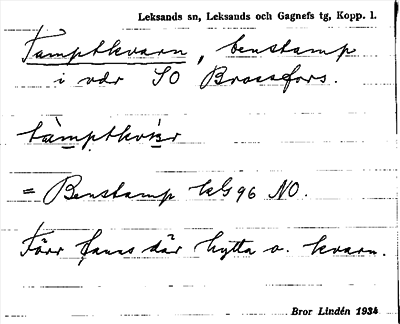 Leksands sn, Leksands och Gagnefs tg, Kopp. l.
Tamptkvarn, benstamp
i vdr SO Brossfors.
= Benstamp 96 NO.
Förr fanns där hytta o. kvarn.
Bror Lindén 1934